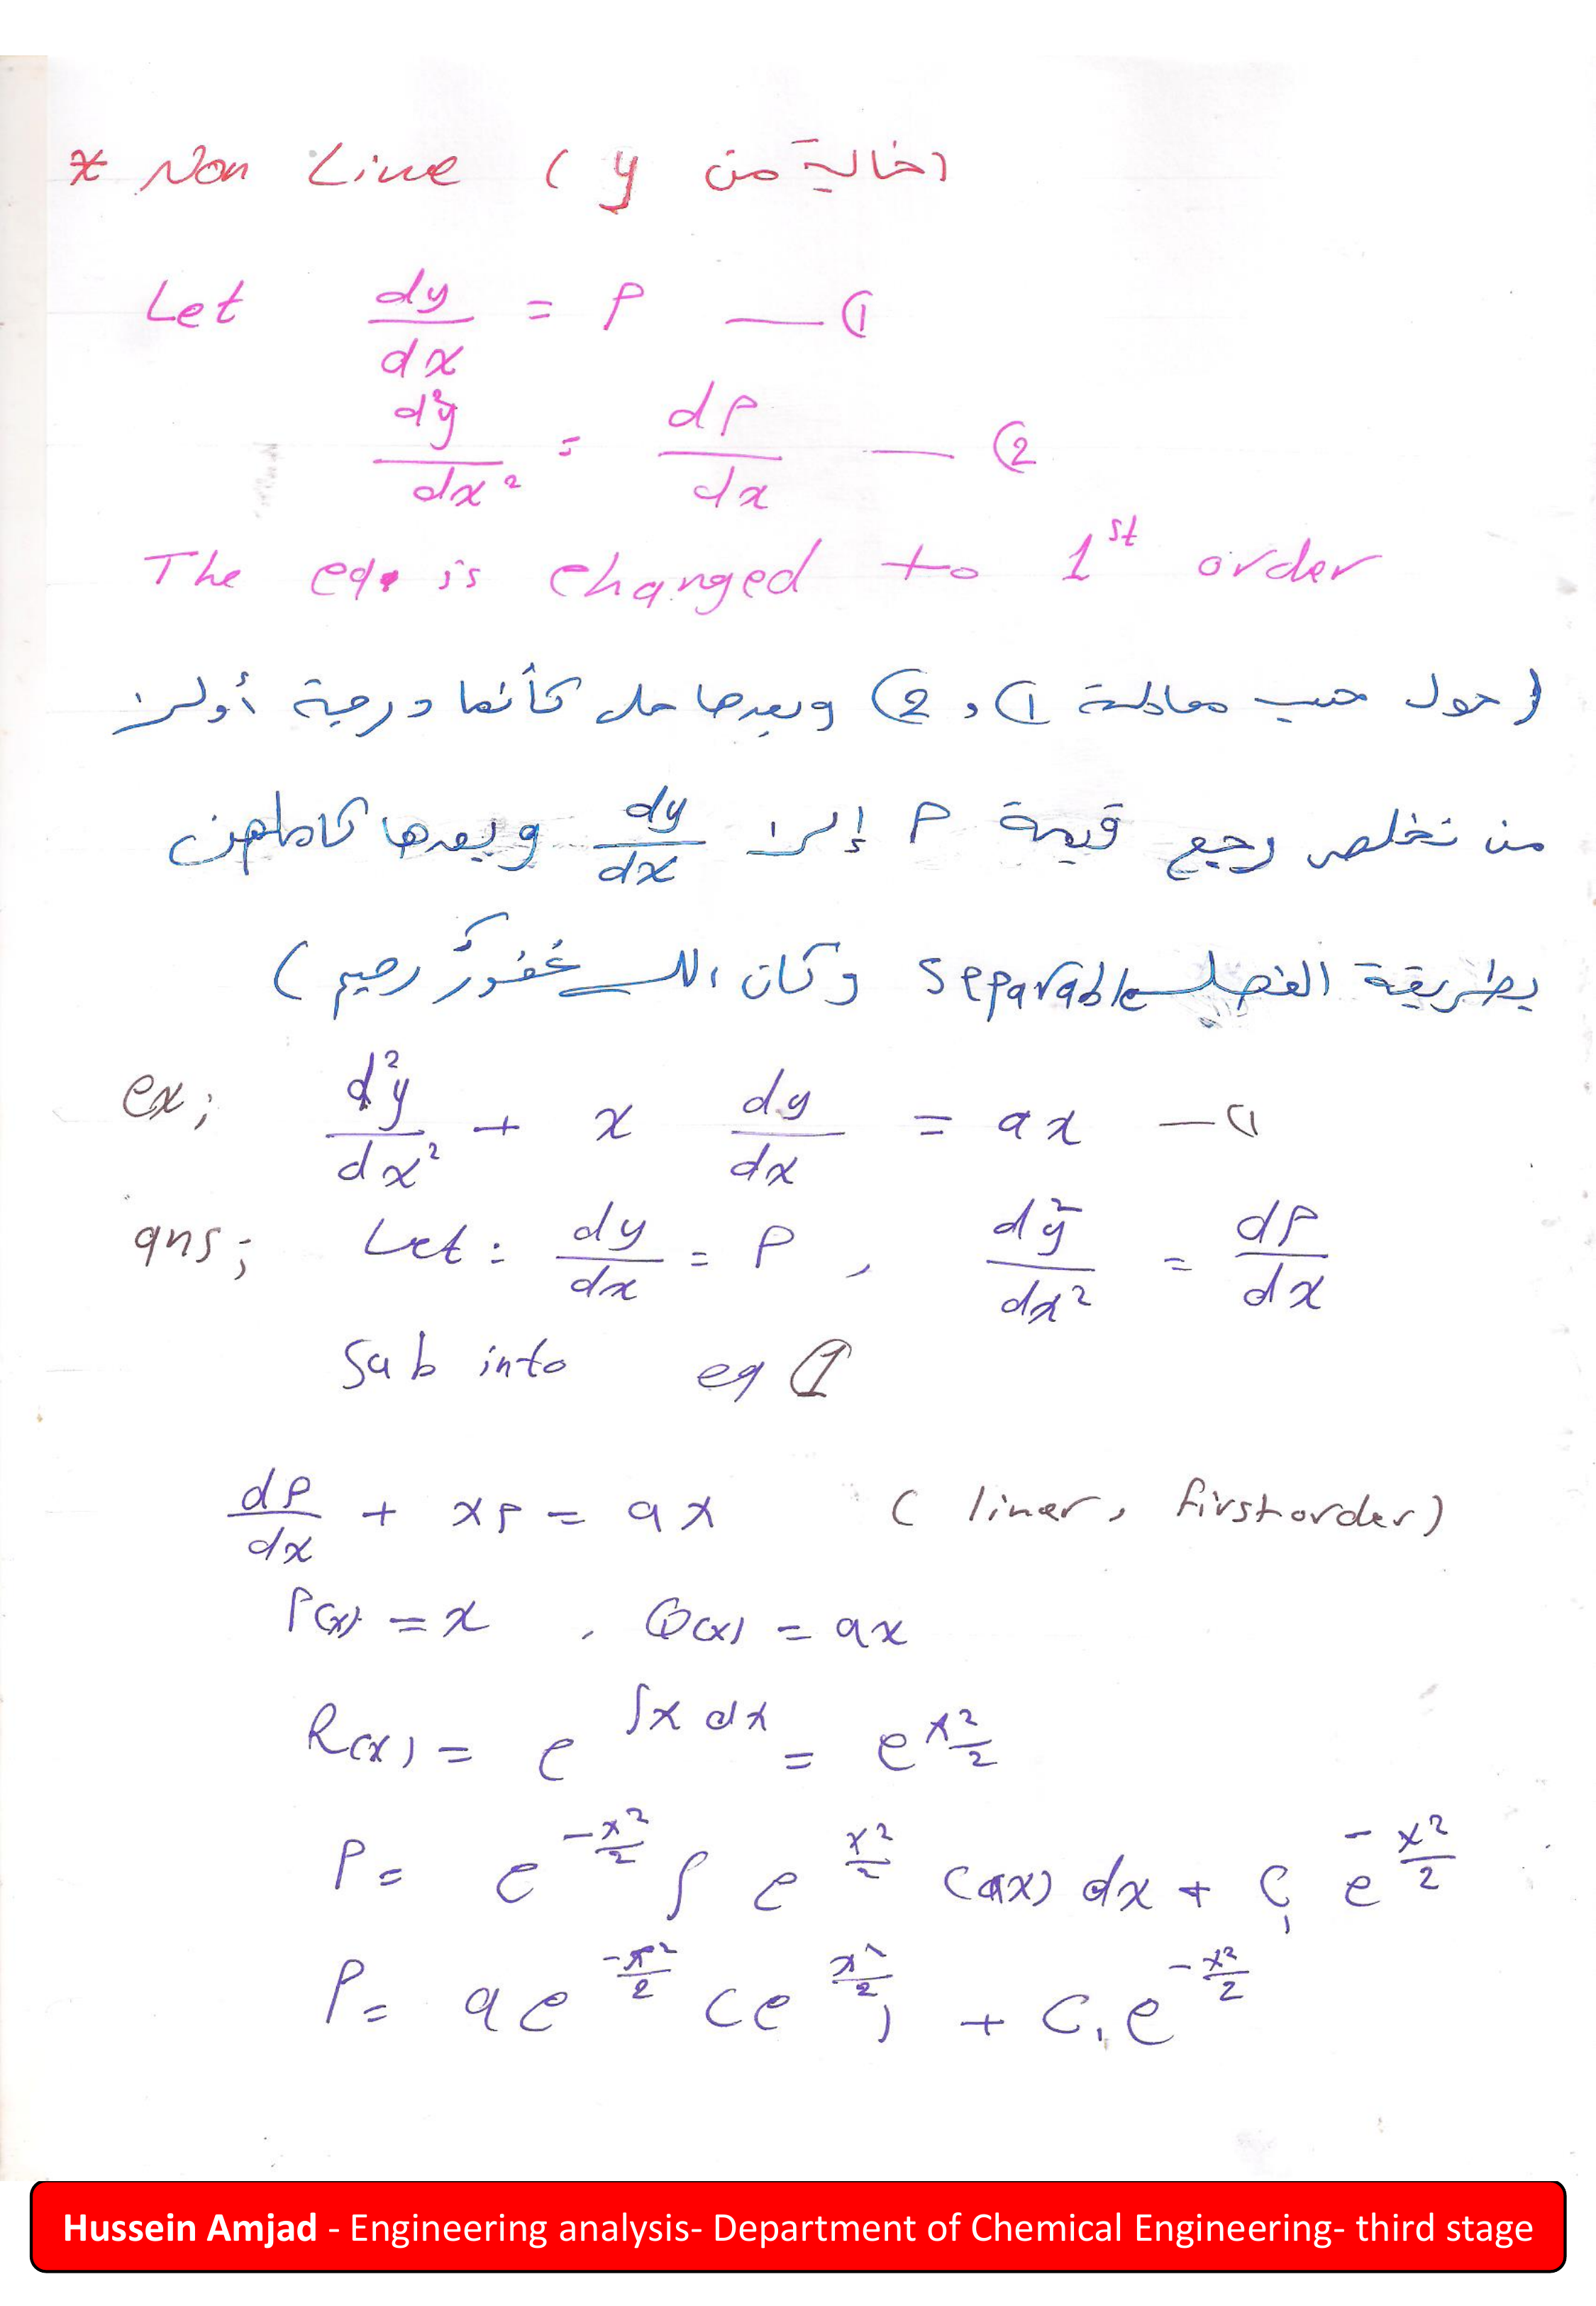 * Non Line ( y خالية من )
Let dy/dx = P — ①
d²y/dx² = dP/dx — ②
The eq. is changed to 1st order
( حول حسب معادلة ① و ② وبعدها حل كأنما درجة أولى
من تخلص رجع قيمة P إلى dy/dx وبعدها كاملهن
بطريقة الفصل separable وكان الله غفورٌ رحيم )
ex; d²y/dx² + x dy/dx = ax — ①
ans; Let: dy/dx = P , d²y/dx² = dP/dx
Sub into eq ①
dP/dx + xP = ax ( liner, first order )
P(x) = x , Q(x) = ax
R(x) = e^∫x dx = e^x²/2
P = e^-x²/2 ∫ e^x²/2 (ax) dx + C₁ e^-x²/2
P = a e^-x²/2 (e^x²/2) + C₁ e^-x²/2
Hussein Amjad - Engineering analysis- Department of Chemical Engineering- third stage